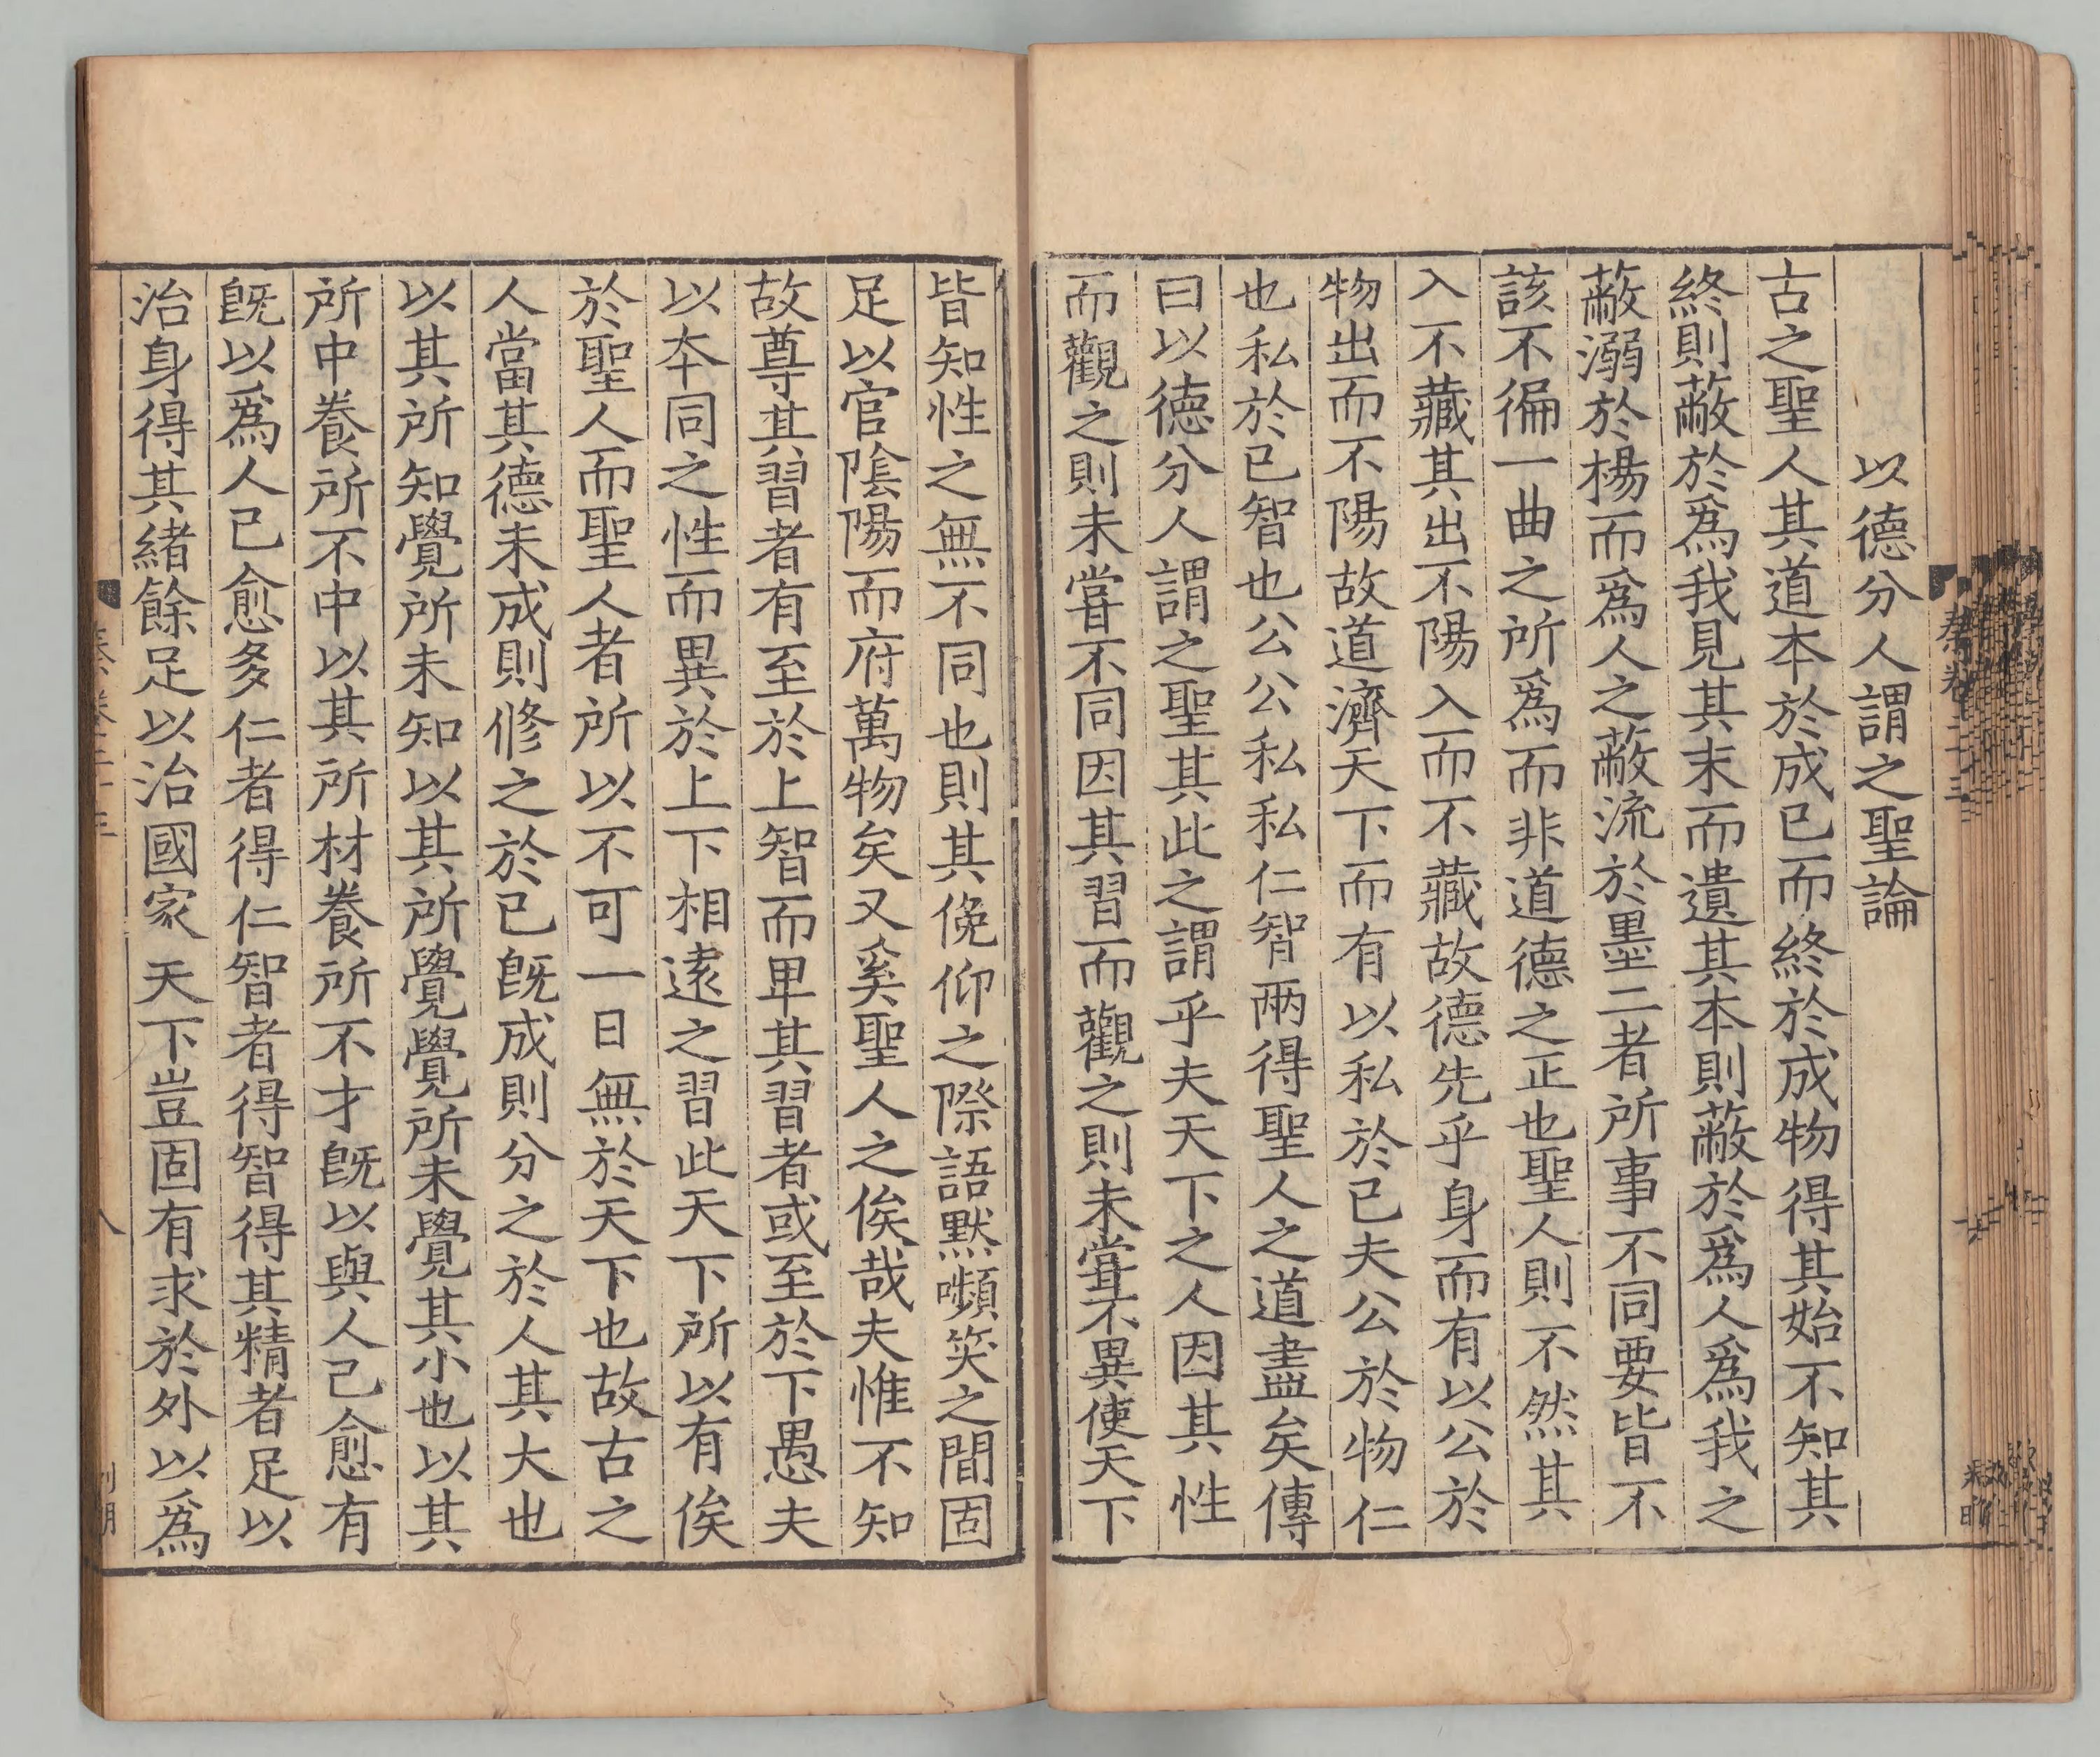 以德分人謂之聖論
古之聖人其道本於成已而終於成物得其始不知其
終則蔽於爲我見其末而遺其本則蔽於爲人爲我之
蔽溺於楊而爲人之蔽流於墨二者所事不同要皆不
該不徧一曲之所爲而非道德之正也聖人則不然其
入不藏其出不陽入而不藏故德先乎身而有以公於
物出而不陽故道濟天下而有以私於已夫公於物仁
也私於已智也公公私私仁智兩得聖人之道盡矣傳
曰以德分人謂之聖其此之謂乎夫天下之人因其性
而觀之則未甞不同因其習而觀之則未甞不異使天下
皆知性之無不同也則其俛仰之際語默嚬笑之間固
足以官隂陽而府萬物矣又奚聖人之俟哉夫惟不知
故尊其習者有至於上智而卑其習者或至於下愚夫
以夲同之性而異於上下相逺之習此天下所以有俟
於聖人而聖人者所以不可一日無於天下也故古之
人當其德未成則修之於已旣成則分之於人其大也
以其所知覺所未知以其所覺覺所未覺其小也以其
所中養所不中以其所材養所不才旣以與人己愈有
旣以爲人己愈多仁者得仁智者得智得其精者足以
治身得其緒餘足以治國家天下豈固有求於外以爲
秦卷二十三
八